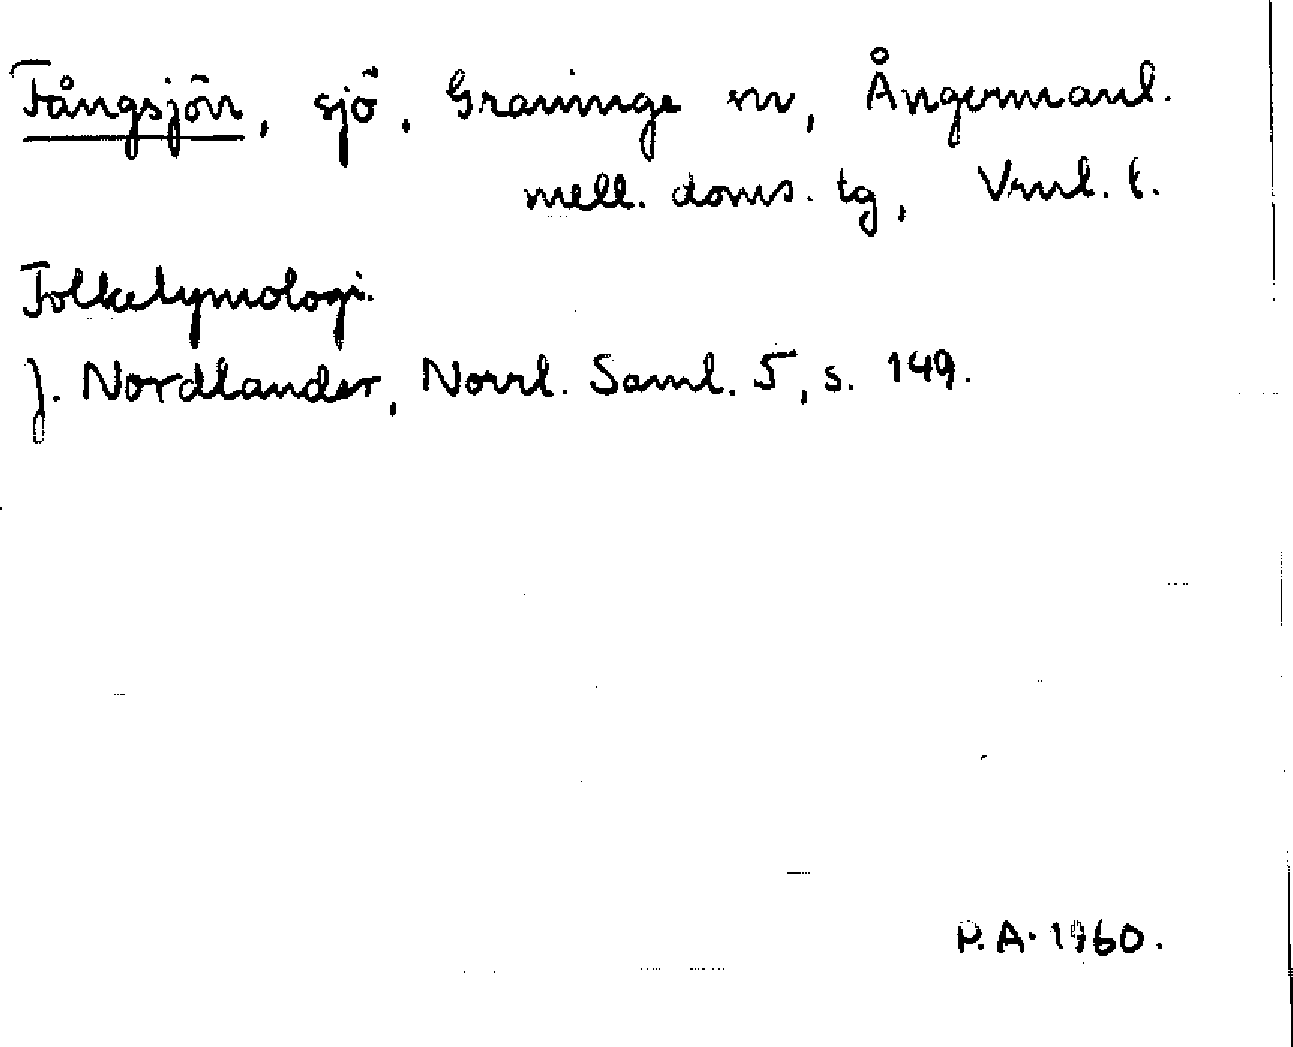 Fångsjön, sjö, Graninge sn, Ångermanl.
mell. doms. tg, Vrnl. l.
Folketymologi.
J. Nordlander, Norrl. Saml. 5, s. 149.
P.A. 1960.